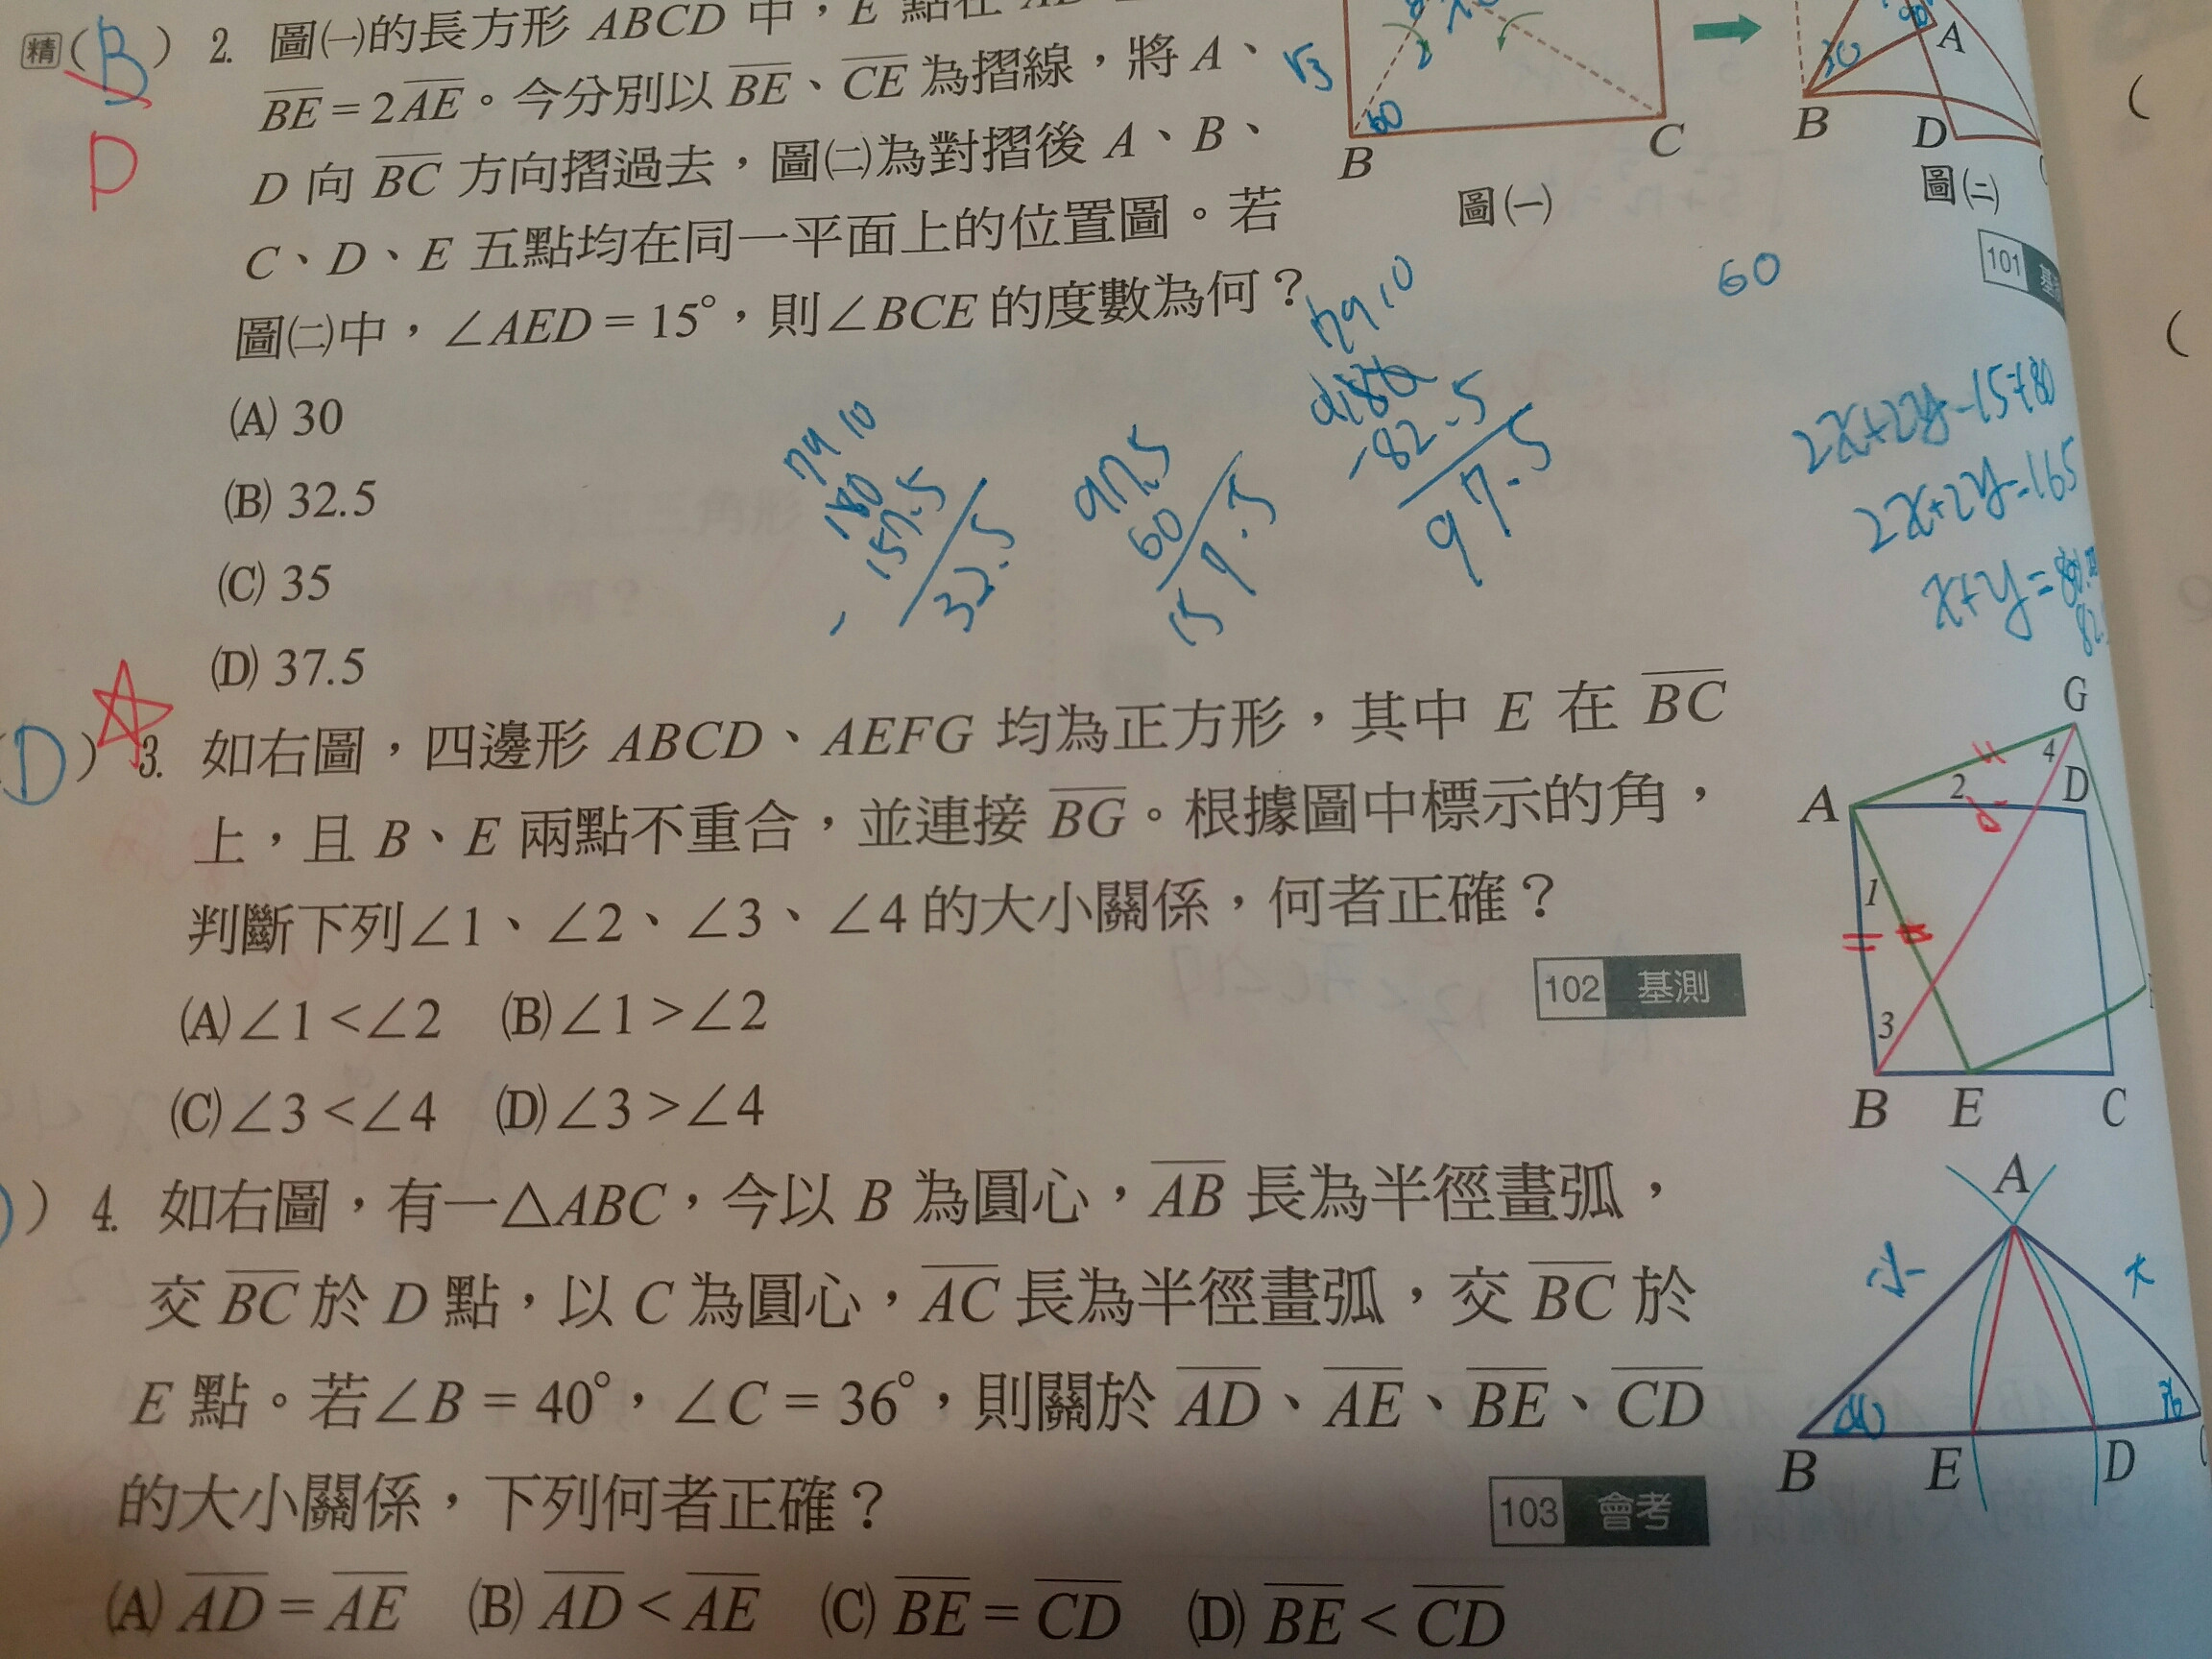 精 ( B ) 2. 圖㈠的長方形 ABCD 中,E 點在 AD
BE = 2AE。今分別以 BE、CE 為摺線,將 A、
D
D 向 BC 方向摺過去,圖㈡為對摺後 A、B、
C、D、E 五點均在同一平面上的位置圖。若
圖㈡中,∠AED = 15°,則∠BCE 的度數為何?
(A) 30
(B) 32.5
(C) 35
(D) 37.5
B
C
60
圖㈠
B
D
A
30
圖㈡
101
60
180
157.5
32.5
97.5
60
-82.5
97.5
(D) 3. 如右圖,四邊形 ABCD、AEFG 均為正方形,其中 E 在 BC
上,且 B、E 兩點不重合,並連接 BG。根據圖中標示的角,
判斷下列∠1、∠2、∠3、∠4 的大小關係,何者正確?
102 基測
(A)∠1<∠2 (B)∠1>∠2
(C)∠3<∠4 (D)∠3>∠4
G
4
D
2
A
1
3
B E C
) 4. 如右圖,有一△ABC,今以 B 為圓心,AB 長為半徑畫弧,
交 BC 於 D 點,以 C 為圓心,AC 長為半徑畫弧,交 BC 於
E 點。若∠B = 40°,∠C = 36°,則關於 AD、AE、BE、CD
的大小關係,下列何者正確?
103 會考
(A) AD = AE (B) AD < AE (C) BE = CD (D) BE < CD
A
小
大
40
36
B E D